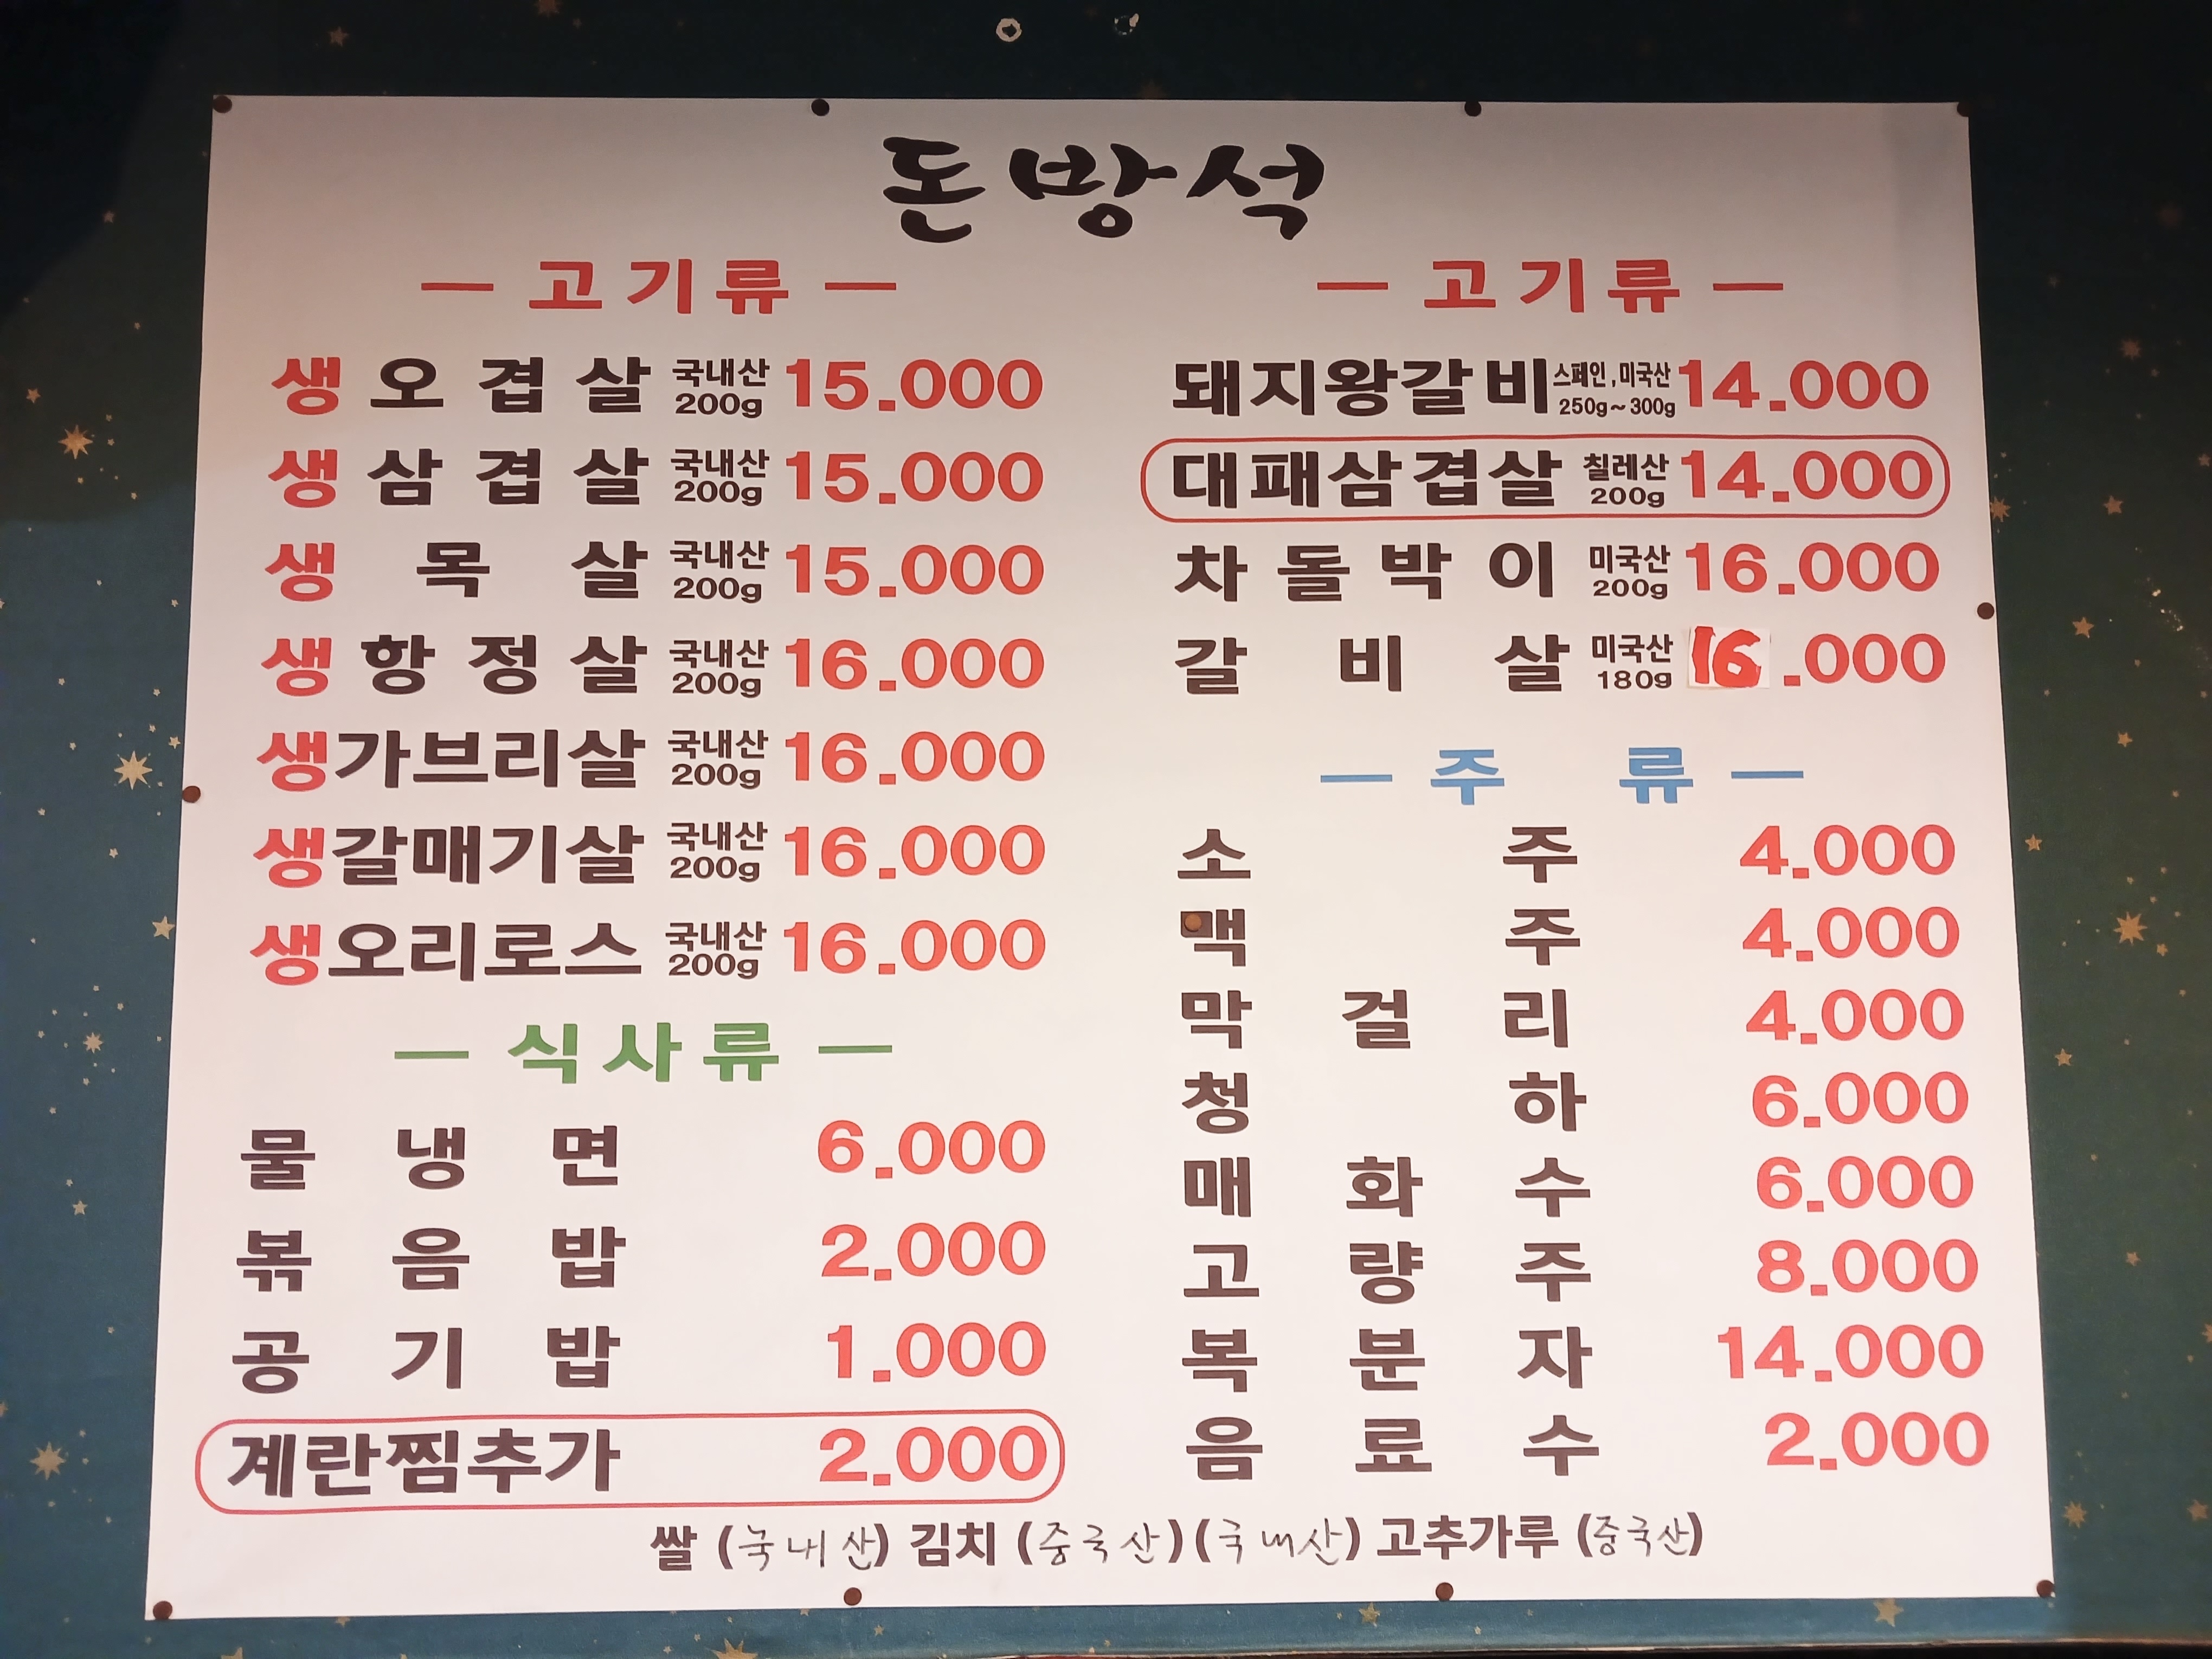 돈방석
— 고기류 —
생오겹살 국내산 200g 15.000
생삼겹살 국내산 200g 15.000
생목살 국내산 200g 15.000
생항정살 국내산 200g 16.000
생가브리살 국내산 200g 16.000
생갈매기살 국내산 200g 16.000
생오리로스 국내산 200g 16.000
— 식사류 —
물냉면 6.000
볶음밥 2.000
공기밥 1.000
계란찜추가 2.000
— 고기류 —
돼지왕갈비 스페인,미국산 250g~300g 14.000
대패삼겹살 칠레산 200g 14.000
차돌박이 미국산 200g 16.000
갈비살 미국산 180g 16.000
— 주류 —
소주 4.000
맥주 4.000
막걸리 4.000
청하 6.000
매화수 6.000
고량주 8.000
복분자 14.000
음료수 2.000
쌀 (국내산) 김치 (중국산) (국내산) 고추가루 (중국산)